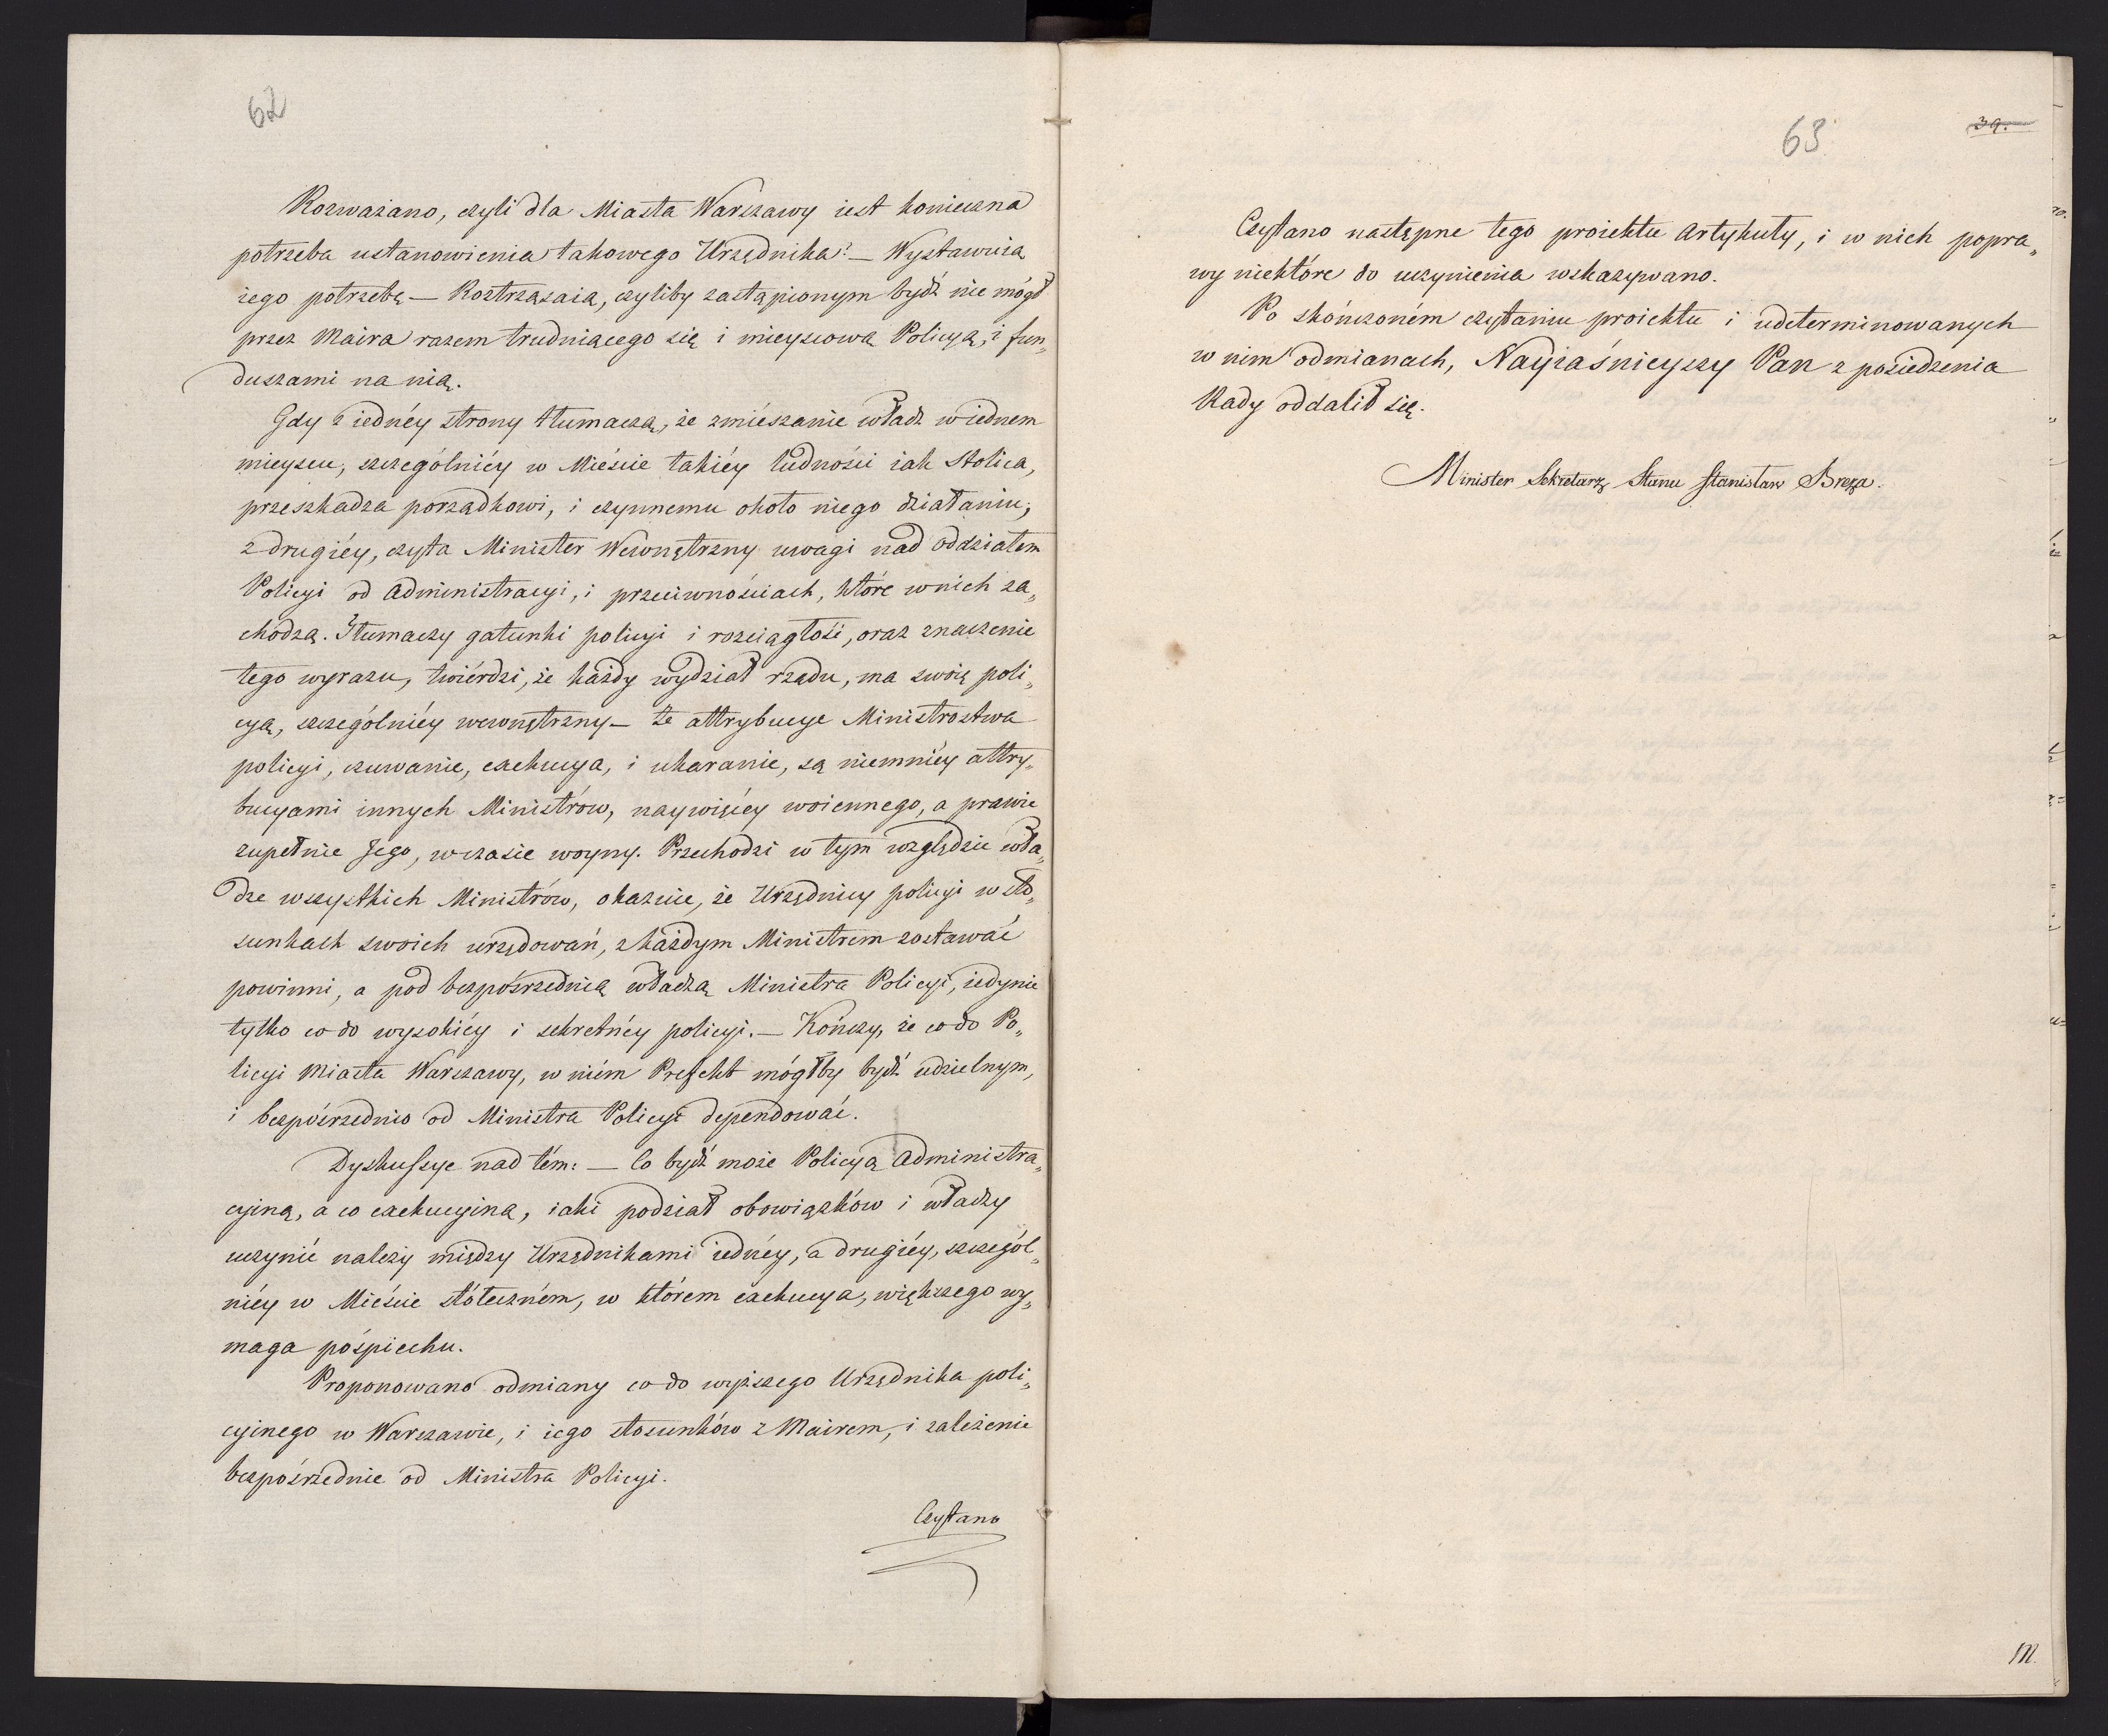 62
Rozważano, czyli dla Miasta Warszawy iest konieczna
potrzeba ustanowienia takowego Urzędnika? — Wystawuią
iego potrzebę — Roztrząsaią, czyliby zastąpionym bydź nie mógł
przez Maira razem trudniącego się i mieyscową Policyą, i fun„
duszami na nią.
Gdy z iednéy strony tłumaczą, że zmiészanie władz w iednem
mieyscu, szczególniéy w Mieście takiéy ludności iak Stolica,
przeszkadza porządkowi, i czynnemu około niego działaniu;
z drugiéy, czyta Minister Wewnętrzny uwagi nad oddziałem
Policyi od Administracyi, i przeciwnościach, które w nich za„
chodzą. Tłumaczy gatunki policyi i rozciągłość, oraz znaczenie
tego wyrazu, twiérdzi, że każdy wydział rządu, ma swoię poli„
cyą, szczególniéy wewnętrzny — że attrybucye Ministrostwa
policyi, czuwanie, exekucya, i ukaranie, są niemniéy attry„
bucyami innych Ministrów, naywięcéy woiennego, a prawie
zupełnie Jego, w czasie woyny. Przechodzi w tym względzie wła„
dze wszystkich Ministrów, okazuie, że Urzędnicy policyi w sto„
sunkach swoich urzędowań, z każdym Ministrem zostawać
powinni, a pod bezpośrzednią władzą Ministra Policyi, iedynie
tylko co do wysokiéy i sekretnéy policyi. — Kończy, że co do Po„
licyi Miasta Warszawy, w niém Prefekt mógłby bydź udzielnym,
i bezpośrzednio od Ministra Policyi dependować.
Dyskussye nad tém: — Co bydź może Policyą Administra„
cyiną, a co exekucyiną, iaki podział obowiązków i władzy
uczynić należy między Urzędnikami iednéy, a drugiéy, szczegól„
niéy w Mieście stółeczném, w którem exekucya, większego wy„
maga pośpiechu.
Proponowano odmiany co do wyższego Urzędnika poli„
cyinego w Warszawie, i iego stosunków z Mairem, i zależenie
bezpośrzednie od Ministra Policyi.
Czytano
63
39.
Czytano następne tego proiektu Artykuły, i w nich popra„
wy niektóre do uczynienia wskazywano.
Po skończoném czytaniu proiektu i udeterminowanych
w nim odmianach, Nayiaśnieyszy Pan z posiedzenia
Rady oddalił się.
Minister Sekretarz Stanu Stanisław Breza.